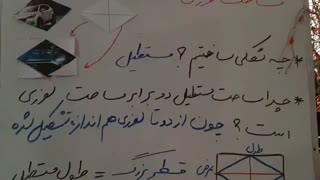 مساحت لوزی
* چه شکلی ساختیم ؟ مستطیل
* چرا مساحت مستطیل دو برابر مساحت لوزی
است ؟ چون از دو تا لوزی هم اندازه تشکیل شده
طول
عرض
قطر بزرگ = طول مستطیل